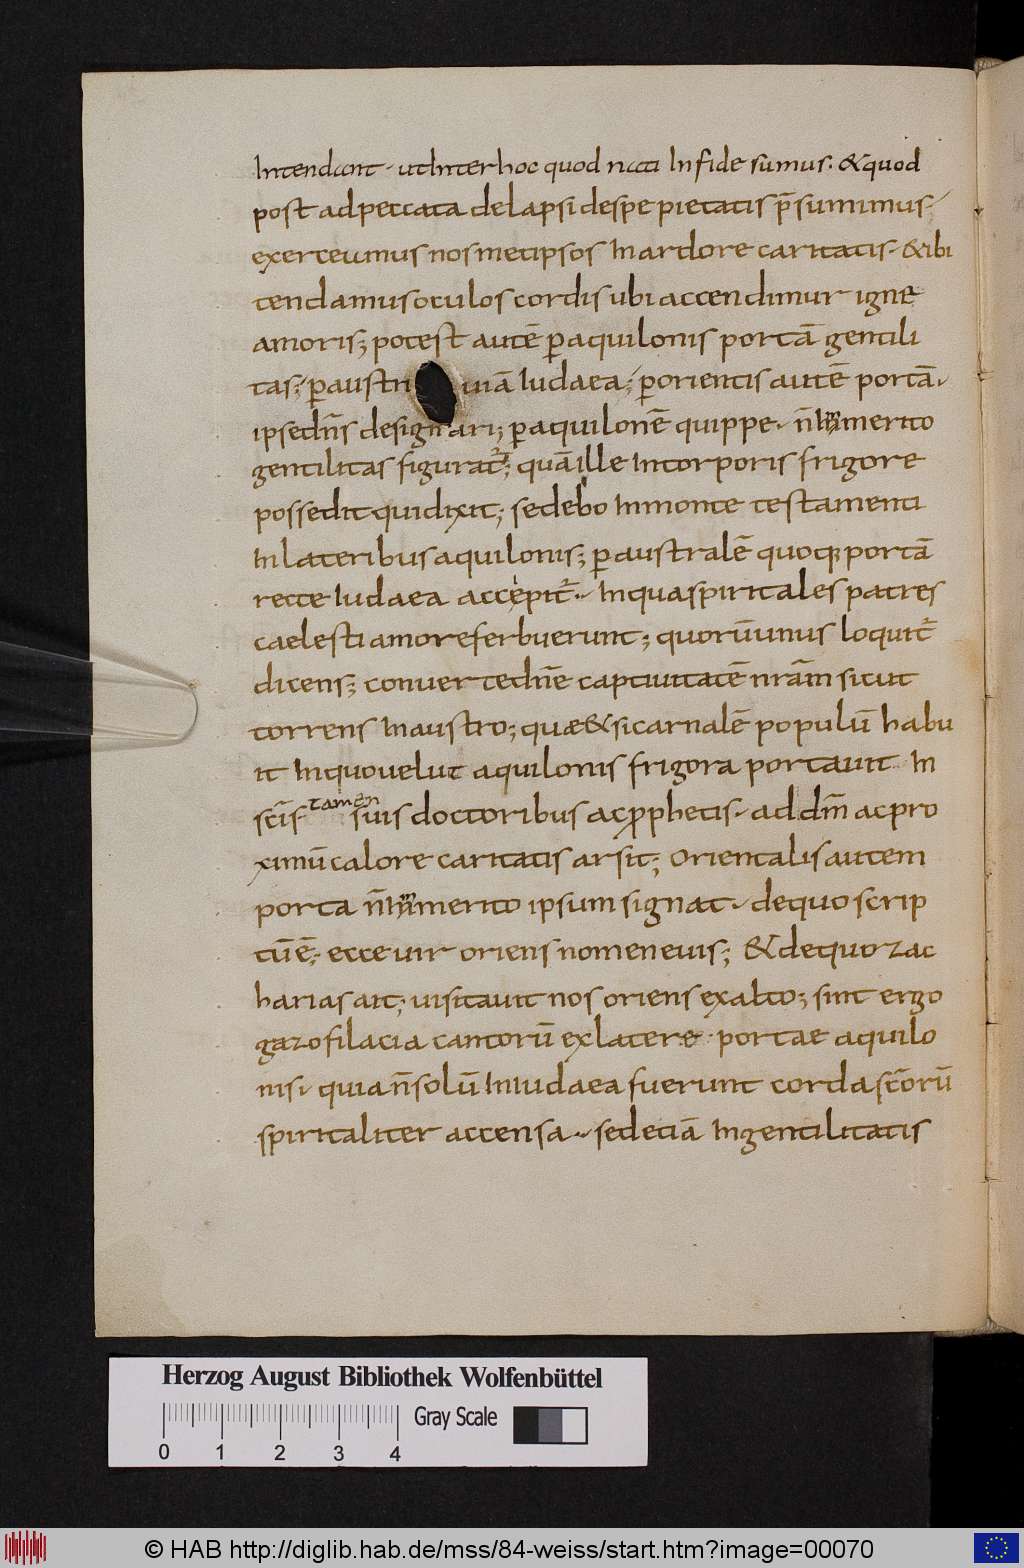 Intendunt. utInter hoc quod nati In fide sumus. &quod
post adpeccata delapsi despe pietatis p̄sumimus.
exerceamus nosmetipsos In ardore caritatis. &ibi
tendamus oculos cordis ubi accendimur igne
amoris; potest autē ꝑaquilonis portā gentili
tas; ꝑaustri uiā Iudaea; ꝑorientis autē portā.
ipse dn̄s designari; ꝑaquilonē quippe. n̄ Inmerito
gentilitas figurat̄; quā ille In torporis frigore
possedit qui dixit; sedebo Inmonte testamenti
In lateribus aquilonis; ꝑaustralē quoq; portā
recte Iudaea accipit̄. Inqua spiritales patres
caelesti amore ferbuerunt; quorū unus loquit̄
dicens; conuerte dn̄e captiuitatē nr̄am sicut
torrens Inaustro; quae &si carnalē populū habu
it Inquo uelut aquilonis frigora portauit In
sc̄is tamen suis doctoribus ac ꝓphetis. ad dm̄ ac pro
ximū calore caritatis arsit; Orientalis autem
porta n̄ Inmerito ipsum signat. de quo scrip
tū ē. ecce uir oriens nomen eius; & de quo zac
harias ait; uisitauit nos oriens exalto; sint ergo
gazofilacia cantorū exlatere portae aquilo
nis. quia n̄ solū In iudaea fuerunt corda sc̄orū
spiritaliter accensa. sed etiā In gentilitatis
Herzog August Bibliothek Wolfenbüttel
0 1 2 3 4 Gray Scale
© HAB http://diglib.hab.de/mss/84-weiss/start.htm?image=00070